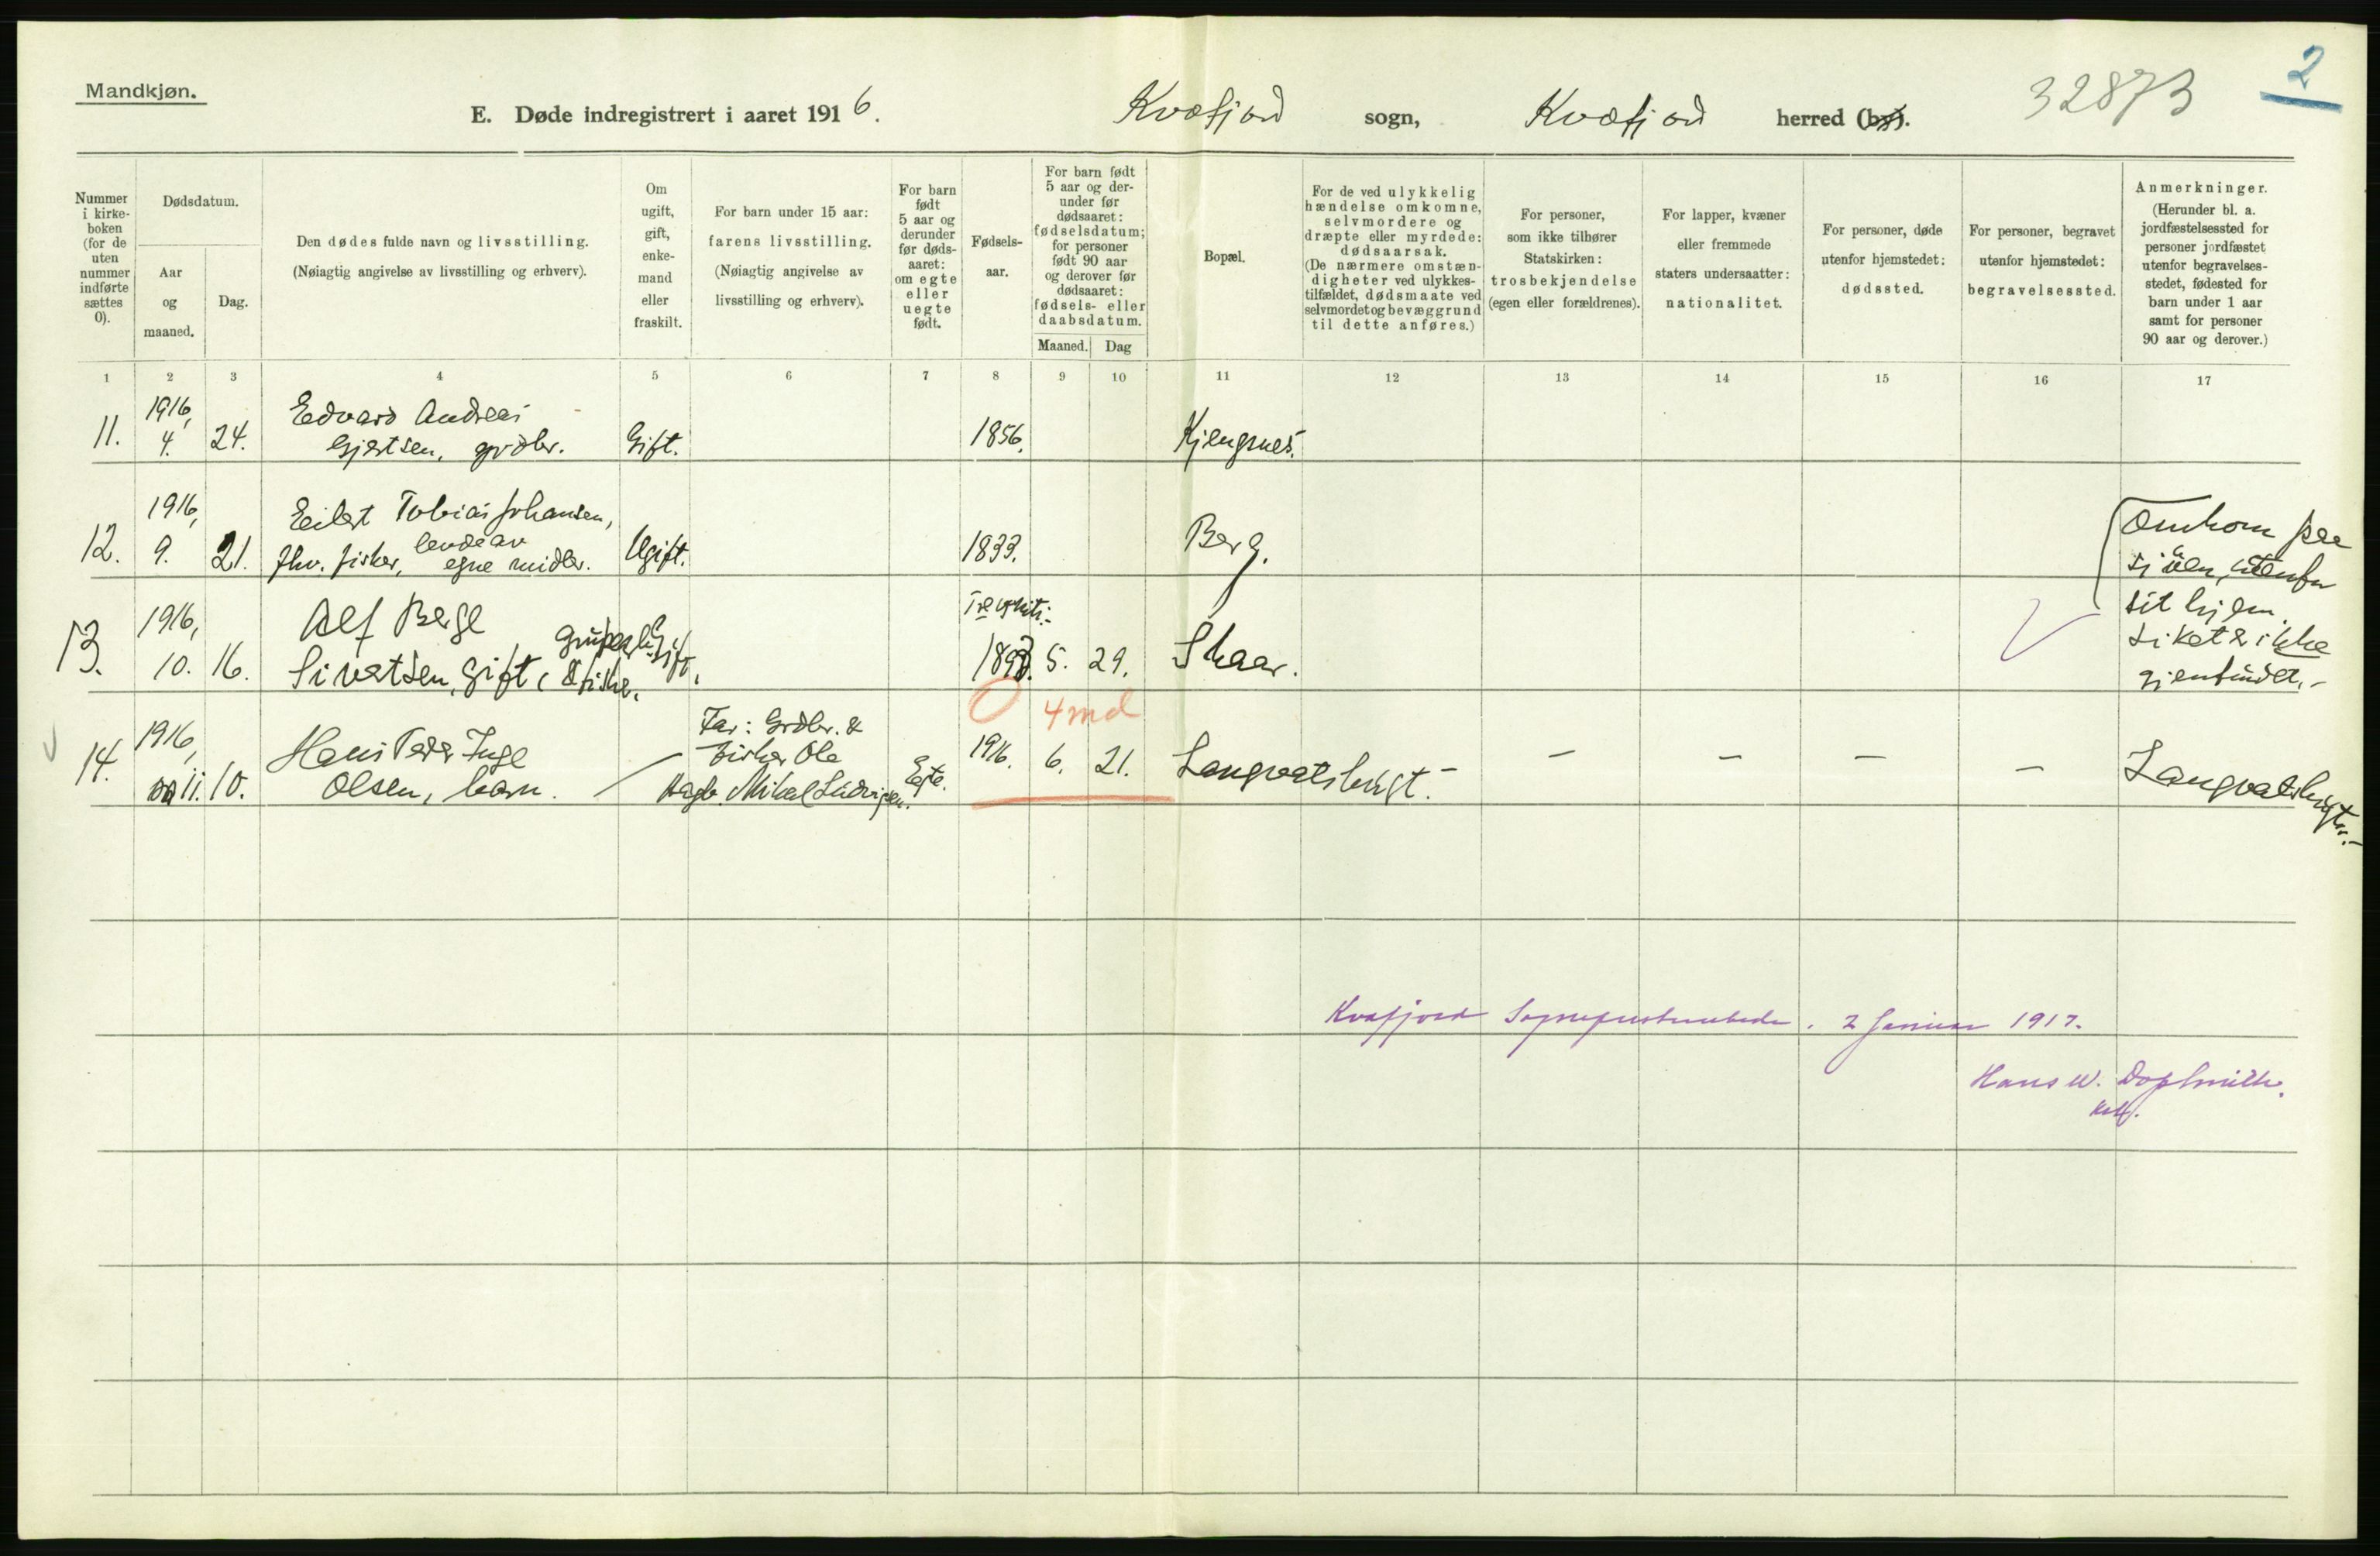 Mandkjøn.
E. Døde indregistrert i aaret 1916.
Kvæfjord sogn, Kvæfjord herred (by).
32873
2
Nummer i kirke-boken (for de uten nummer indførte sættes 0).
Dødsdatum.
Aar og maaned.
Dag.
Den dødes fulde navn og livsstilling.
(Nøiagtig angivelse av livsstilling og erhverv).
Om ugift, gift, enke-mand eller fraskilt.
For barn under 15 aar: farens livsstilling.
(Nøiagtig angivelse av livsstilling og erhverv).
For barn født 5 aar og derunder før døds-aaret: om egte eller uegte født.
Fødsels-aar.
For barn født 5 aar og der-under før dødsaaret: fødselsdatum; for personer født 90 aar og derover før dødsaaret: fødsels- eller daabsdatum.
Maaned. Dag
Bopæl.
For de ved ulykkelig hændelse omkomne, selvmordere og dræpte eller myrdede: dødsaarsak.
(De nærmere omstæn-digheter ved ulykkes-tilfældet, dødsmaate ved selvmordet og bevæggrund til dette anføres.)
For personer, som ikke tilhører Statskirken: trosbekjendelse (egen eller forældrenes).
For lapper, kvæner eller fremmede staters undersaatter: nationalitet.
For personer, døde utenfor hjemstedet: dødssted.
For personer, begravet utenfor hjemstedet: begravelsessted.
Anmerkninger.
(Herunder bl. a. jordfæstelsessted for personer jordfæstet utenfor begravelses-stedet, fødested for barn under 1 aar samt for personer 90 aar og derover.)
1 2 3 4 5 6 7 8 9 10 11 12 13 14 15 16 17
11. 1916, 4. 24. Edvard Andreas
Gjertsen, grdbr. Gift. 1856. Kjengsnes.
12. 1916, 9. 21. Eilert Tobias Johansen,
fhv. fisker, levde av
egne midler. Ugift. 1833. Berg.
13. 1916, 10. 16. Alf Berge
Sivertsen, gift, & fisker. Gift. 5. 29. Skaar.
Omkom paa
sjöen, utenfor
sit hjem.
Liket er ikke
gjenfundet.-
4 md
14. 1916, 11. 10. Hans Peder Inge
Olsen, barn.
Far: Grdbr. &
fisker Ole
Mikal Ludvigsen. Egte. 1916. 6. 21. Langvatsbugt.- - - - - Langvatsbugt.-
Kvæfjord Sogneprestembede. 2 Januar 1917.
Hans W.